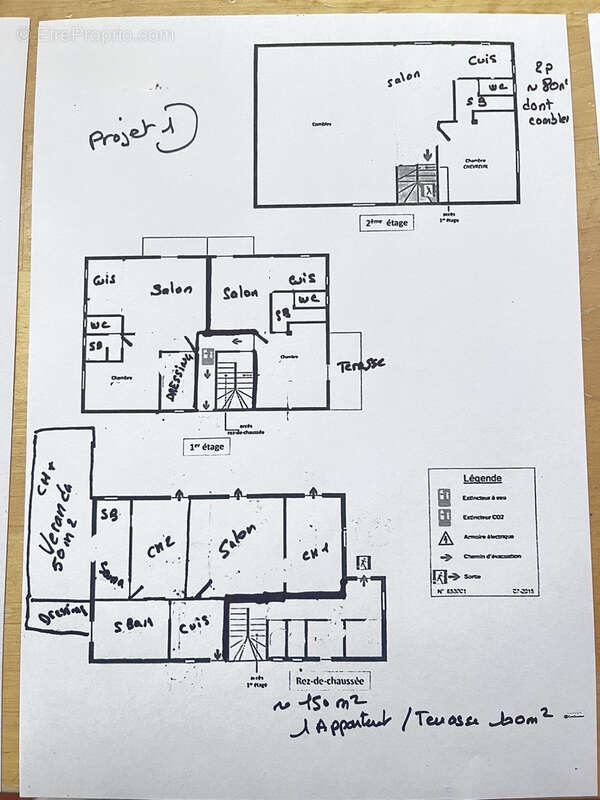 © EtreProprio.com
Projet 1
Cuis
Salon
WC
SB
2P
~ 80m²
dont
combles
Combles
Chambre
CHEVREUIL
accès
1er étage
2ème étage
Cuis
Salon
Salon
Cuis
WC
SB
WC
SB
Chambre
DRESSING
Chambre
Terrasse
accès
rez-de-chaussée
1er étage
CH
Veranda
50m²
SB
CH2
Salon
CH1
Dressing
S.Bain
Cuis
accès
1er étage
Rez-de-chaussée
~ 150m²
1 Appartent / Terrasse
Légende
Extincteur à eau
Extincteur CO2
Armoire électrique
Chemin d'évacuation
Sortie